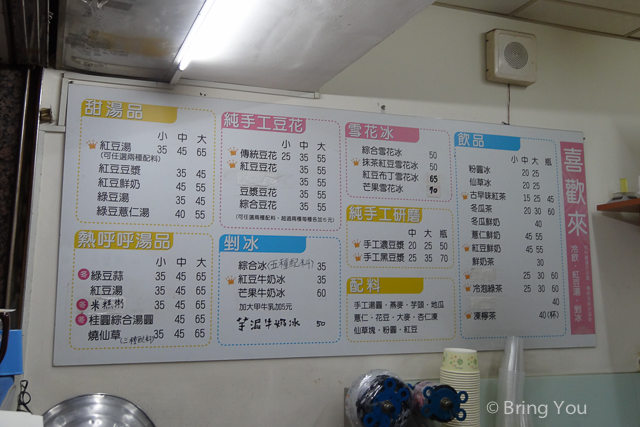 甜湯品
小 中 大
紅豆湯 35 45 65
(可任選兩種配料)
紅豆豆漿 35 45
紅豆鮮奶 45 55
綠豆湯 35 45
綠豆薏仁湯 40 55
熱呼呼湯品
小 中 大
綠豆蒜 35 45 65
紅豆湯 35 45 65
米糕粥 35 45 65
桂圓綜合湯圓 45 65
燒仙草 35 45 65
純手工豆花
小 中 大
傳統豆花 25 35 55
紅豆豆花 35 55
35 55
豆漿豆花 35 55
綜合豆花 35 55
剉冰
綜合冰(五種配料) 35
紅豆牛奶冰 35
芒果牛奶冰 60
加大甲牛乳加5元
芋泥牛奶冰 50
雪花冰
綜合雪花冰 50
抹茶紅豆雪花冰 50
紅豆布丁雪花冰 65
芒果雪花冰 90
純手工研磨
中 大 瓶
手工濃豆漿 20 25 50
手工黑豆漿 25 35 70
配料
手工湯圓、燕麥、芋頭、地瓜
薏仁、花豆、大麥、杏仁凍
仙草塊、粉圓、紅豆
飲品
小 中 大 瓶
粉圓冰 20 25
仙草冰 20 25
古早味紅茶 15 25 45
冬瓜茶 20 30 60
冬瓜鮮奶 40
薏仁鮮奶 45 55
紅豆鮮奶 45 55
鮮奶茶 30
25 30 60
冷泡綠茶 25 30 60
40
凍檸茶 40(杯)
喜歡來
冷飲、紅豆湯、剉冰
© Bring You